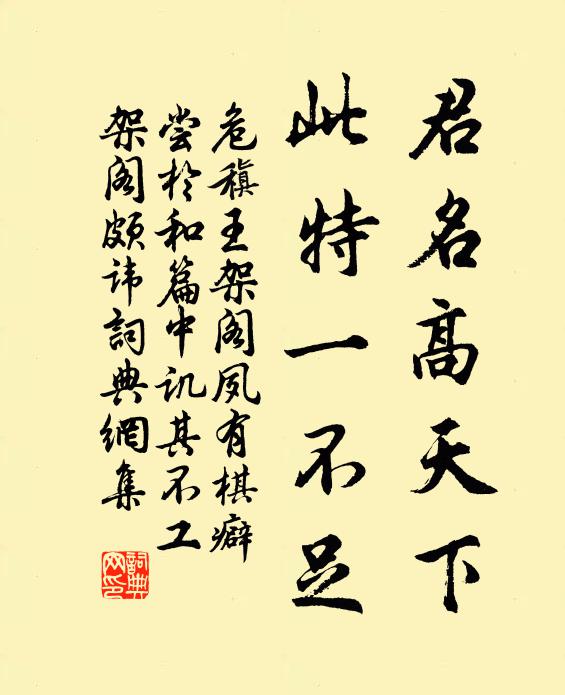 君名高天下
此特一不足
危稹王架阁夙有棋癖
尝於和篇中讥其不工
架阁颇讳詞典網集
詞典
网印